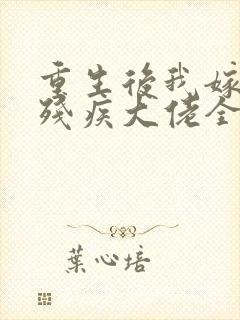 重生後我嫁
殘疾大佬全
葉心培